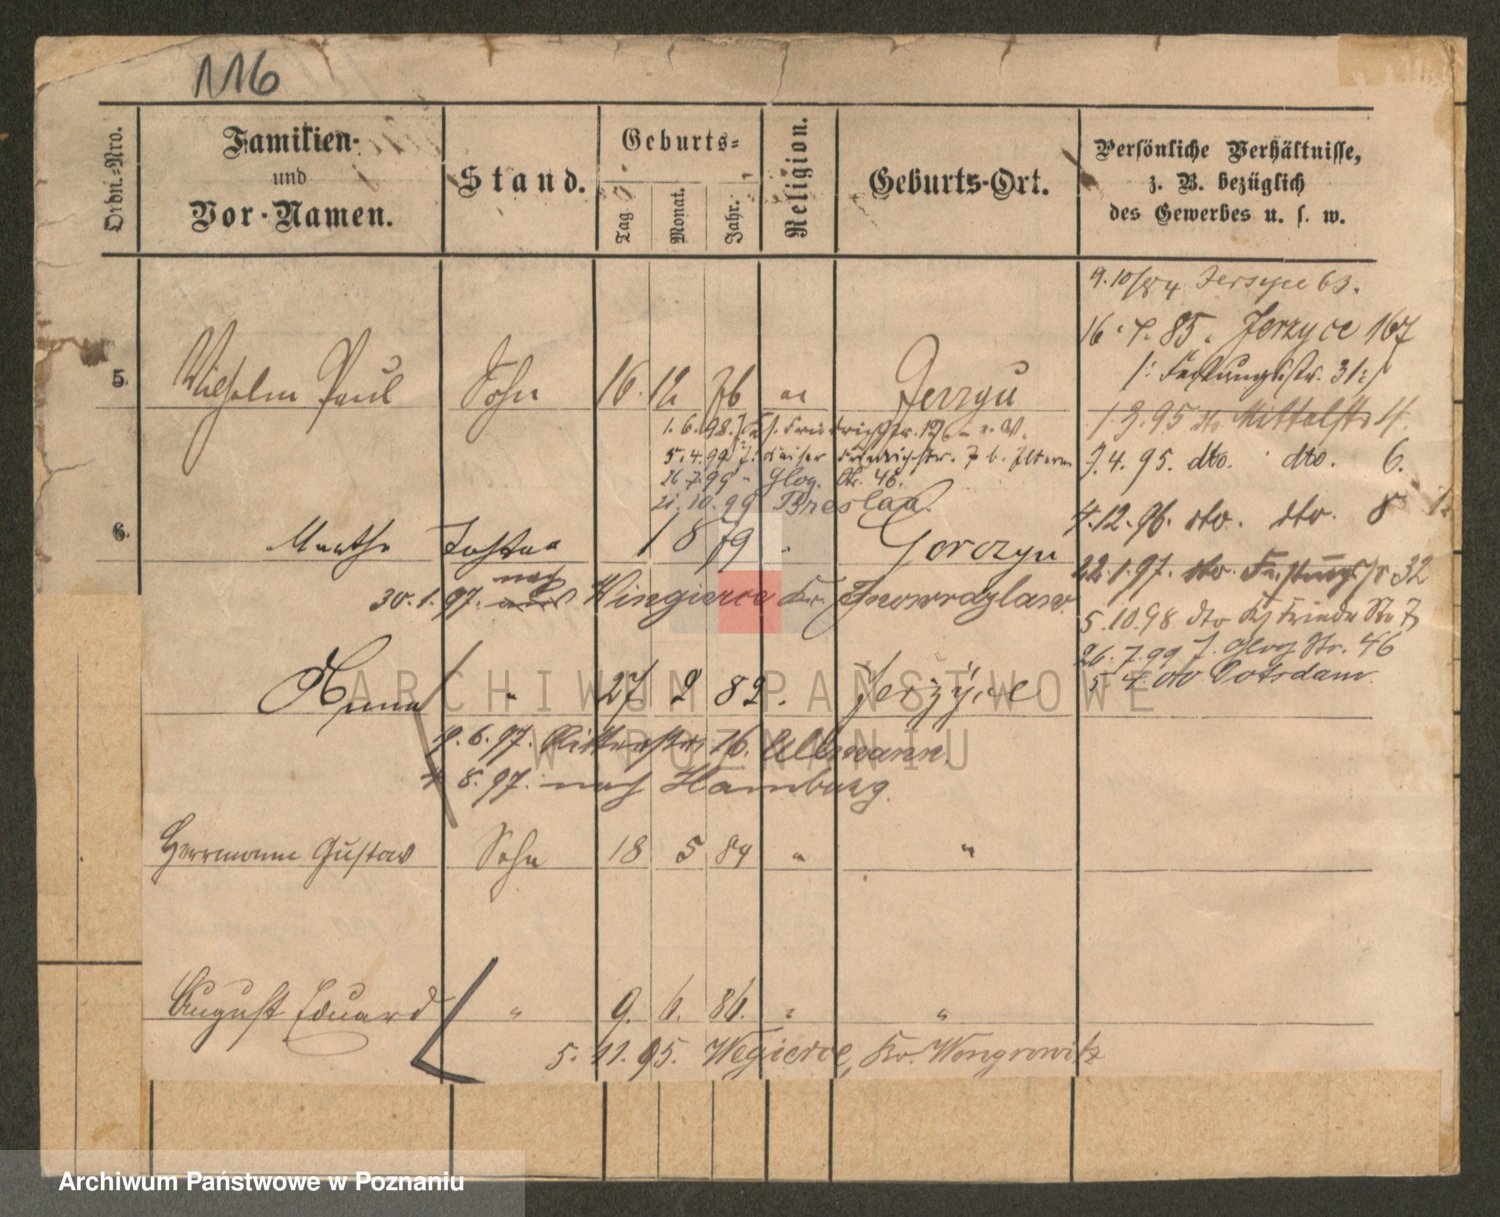 116
Ordn.-Nro.
Familien-
und
Vor-Namen.
Stand.
Geburts-
Tag.
Monat.
Jahr.
Religion.
Geburts-Ort.
Persönliche Verhältnisse,
z. B. bezüglich
des Gewerbes u. s. w.
9.10/84 Jersyce 63.
16.7.85. Jerzyce 167
/: Festungsstr. 31:/
5. Wilhelm Paul Sohn 16. 12 76 Jerzyce
1.3.95 dto Mittelstr 4.
1.6.98. Friedrichstr. 126
5.4.99 Kaiser Friedrichstr. 7 b. Eltern
7.4.95. dto. dto. 6.
26.7.99 Glog. Str. 46.
21.10.99 Breslau.
4.12.96. dto. dto. 8
6. Marthe Tochter 1 8 79 " Gorczyn
22.1.97. dto. Festungsstr 32
30.1.97. nach Wingierce Kr. Inowrazlaw.
5.10.98 dto
26.7.99 J. Glog Str. 46
Potsdam
Anna " 27 2 82. Jerzyce
9.6.97. Ritterstr. 16. Ullmann.
4 8.97. nach Hamburg.
Herrmann Gustav Sohn 18 5 84 " "
August Eduard " 9. 6. 86. " "
5. 11. 95. Wegierce, Kr. Wongrowitz
ARCHIWUM PAŃSTWOWE
W POZNANIU
Archiwum Państwowe w Poznaniu